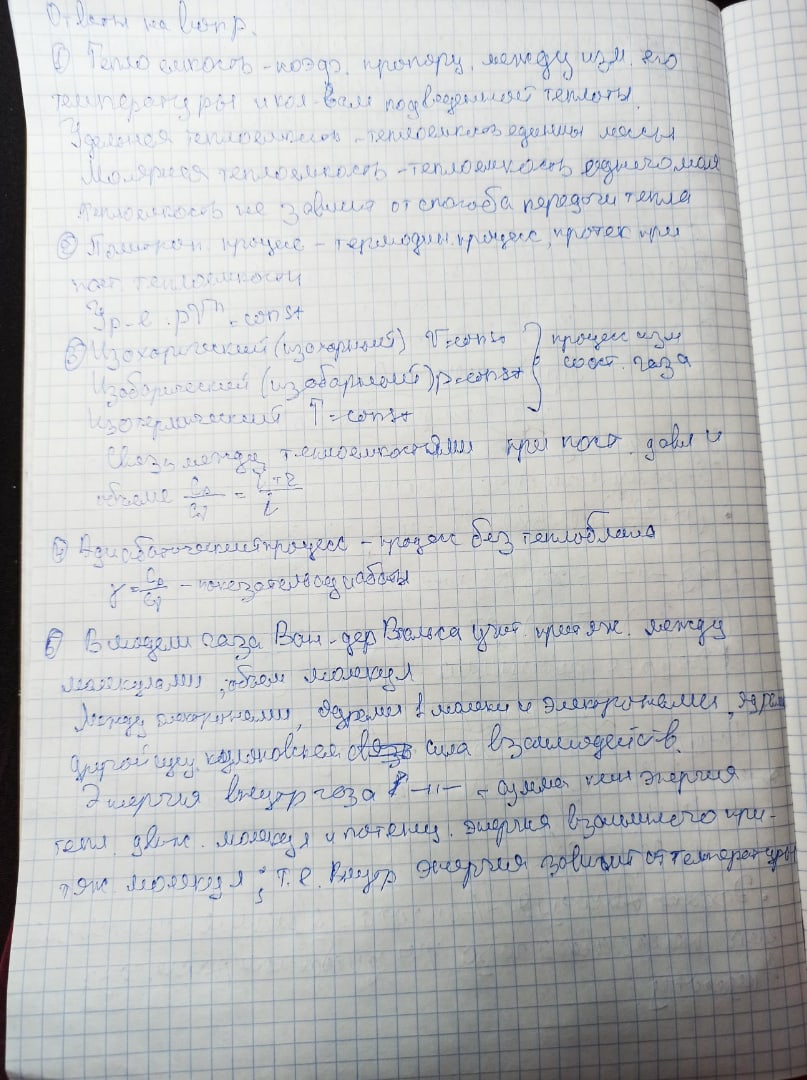 Ответы на вопр.
① Теплоемкость - коэфф. пропорц. между изм. его
температуры и кол-вом подведенной теплоты.
Удельная теплоемкость - теплоемкость единицы массы
Молярная теплоемкость - теплоемкость одного моля
теплоемкость не зависит от способа передачи тепла
② Политроп. процесс - термодин. процесс, протек при
пост теплоемкости
Ур-е. pVⁿ = const
③ Изохорический (изохорный) V=const } процесс изм
Изоборический (изобарный) p=const } сост. газа
Изотермический T=const
Связь между теплоемкостями при пост. давл и
объеме Cp/Cv = i+2/i
④ Адиабатический процесс - процесс без теплобмена
γ = Cp/Cv - показатель адиабаты
В модели газа Ван-дер Ваальса учит. притяж. между
молекулами, объем молекул
Между электронами, ядрами 1 молек и электронами, ядрами
другой кулоновская сила взаимодейств.
Энергия внутр газа -"- - сумма кин энергия
тепл. движ. молекул и потенц. энергия взаимного при-
тяж молекул; т.е. внутр энергия зависит от температуры